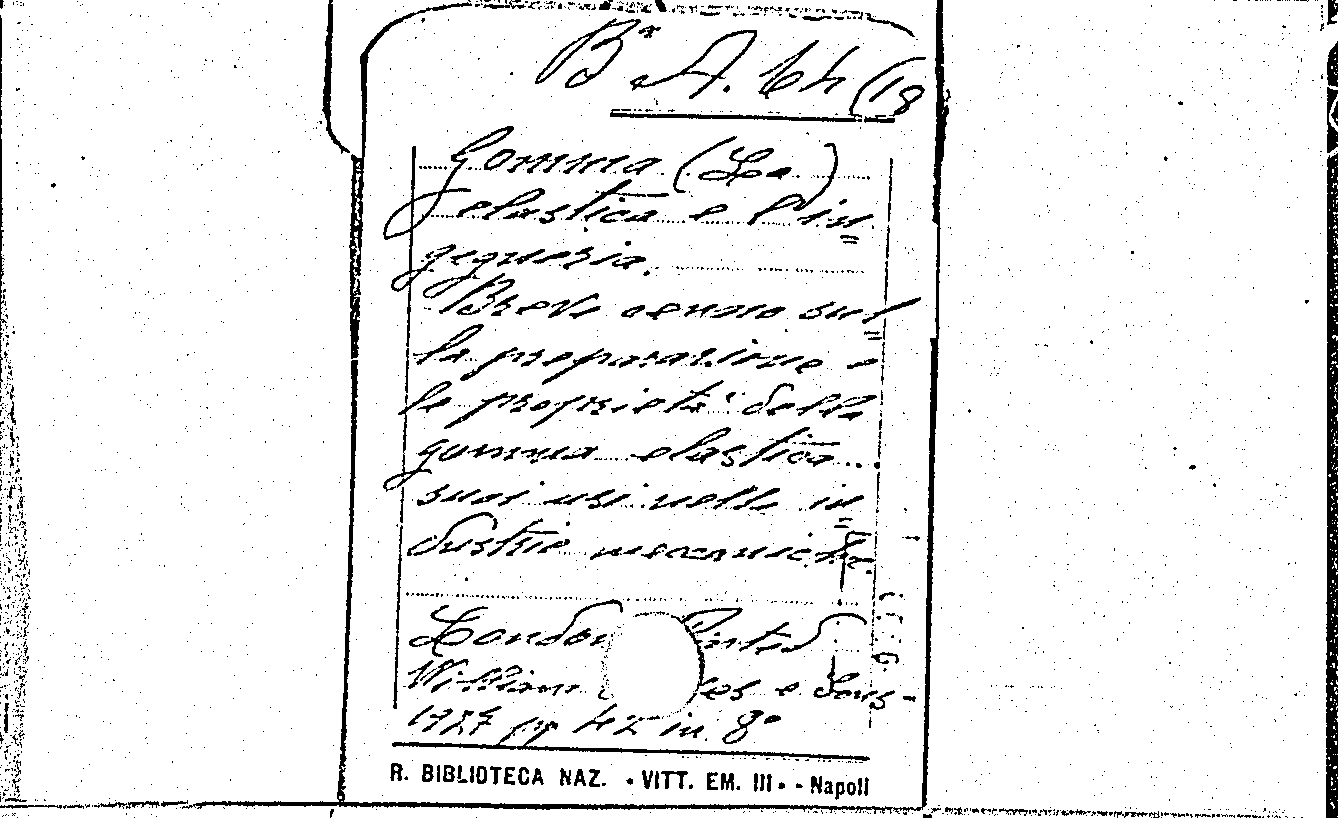 Bª A. 64 (18
Gomma (La)
elastica e l'in=
gegneria.
Breve cenno sul=
la preparazione e
le proprietà della
gomma elastica...
suoi usi nelle in=
dustrie meccaniche.
London Printed
William e Sons-
1927 pp 42 in 8º
R. BIBLIOTECA NAZ. • VITT. EM. III • - Napoli